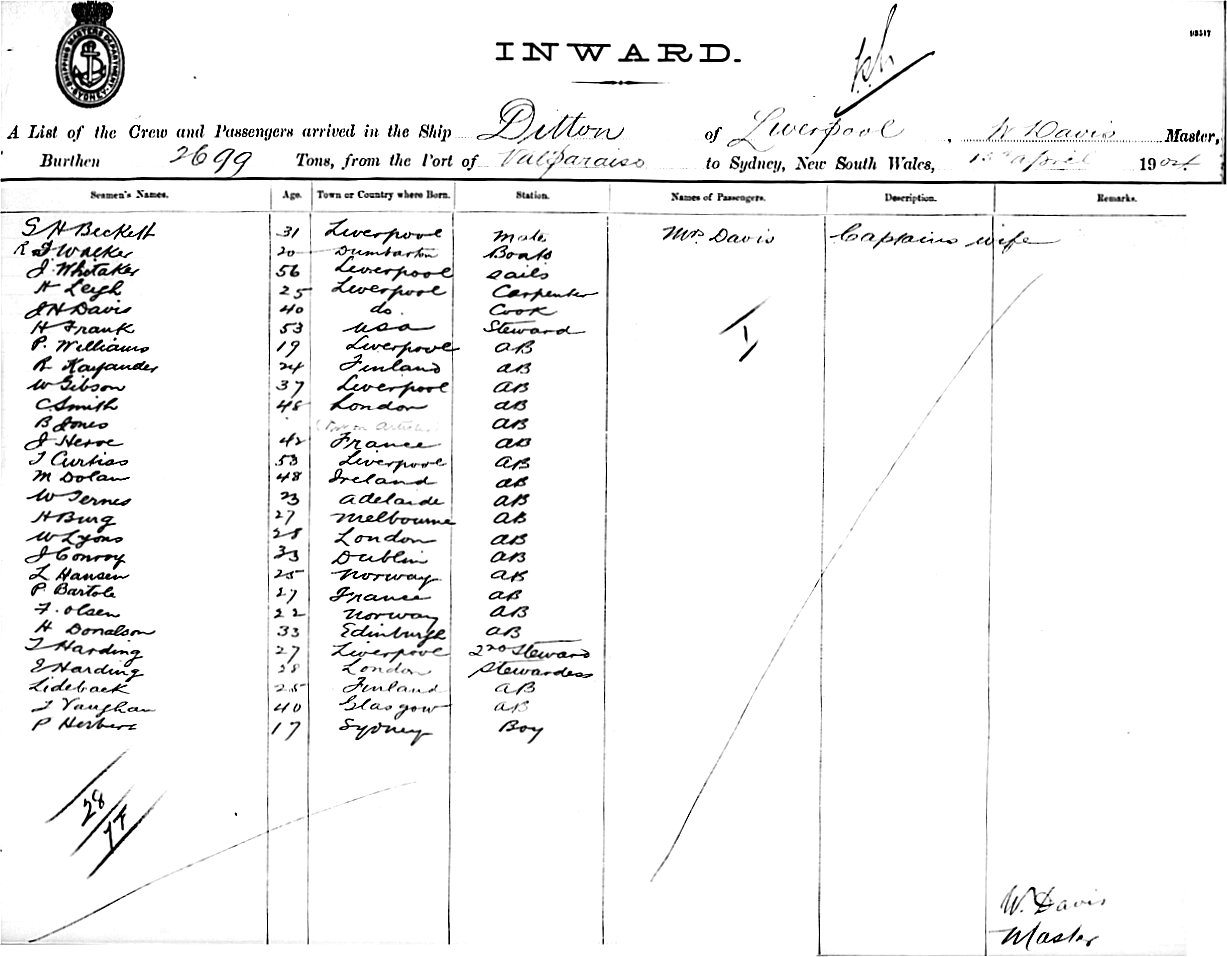 SHIPPING MASTERS DEPARTMENT SYDNEY
03517
INWARD.
A List of the Crew and Passengers arrived in the Ship Ditton of Liverpool, W Davis Master,
Burthen 2699 Tons, from the Port of Valparaiso to Sydney, New South Wales, April 1904
Seamen's Names. Age. Town or Country where Born. Station. Names of Passengers. Description. Remarks.
S H Beckett 31 Liverpool Mate Mrs Davis Captains wife
R J Walker 20 Dumbarton Boats
J. Whitaker 56 Liverpool Sails
H Leigh 25 Liverpool Carpenter
J H Davis 40 do. Cook
H Frank 53 USA Steward
P. Williams 19 Liverpool AB
R Kayander 24 Finland AB
W Gibson 37 Liverpool AB
C Smith 48 London AB
B Jones AB
J Herve 42 France AB
T Curtiss 53 Liverpool AB
M Dolan 48 Ireland AB
W Ternes 23 Adelaide AB
H Burg 27 Melbourne AB
W Lyons 28 London AB
J Conroy 33 Dublin AB
L Hansen 25 Norway AB
P Bartole 27 France AB
F. Olsen 22 Norway AB
H Donalson 33 Edinburgh AB
T Harding 27 Liverpool 2nd Steward
E Harding 28 London Stewardess
Lideback 25 Finland AB
J Vaughan 40 Glasgow AB
P Herbert 17 Sydney Boy
1
28
W. Davis
Master